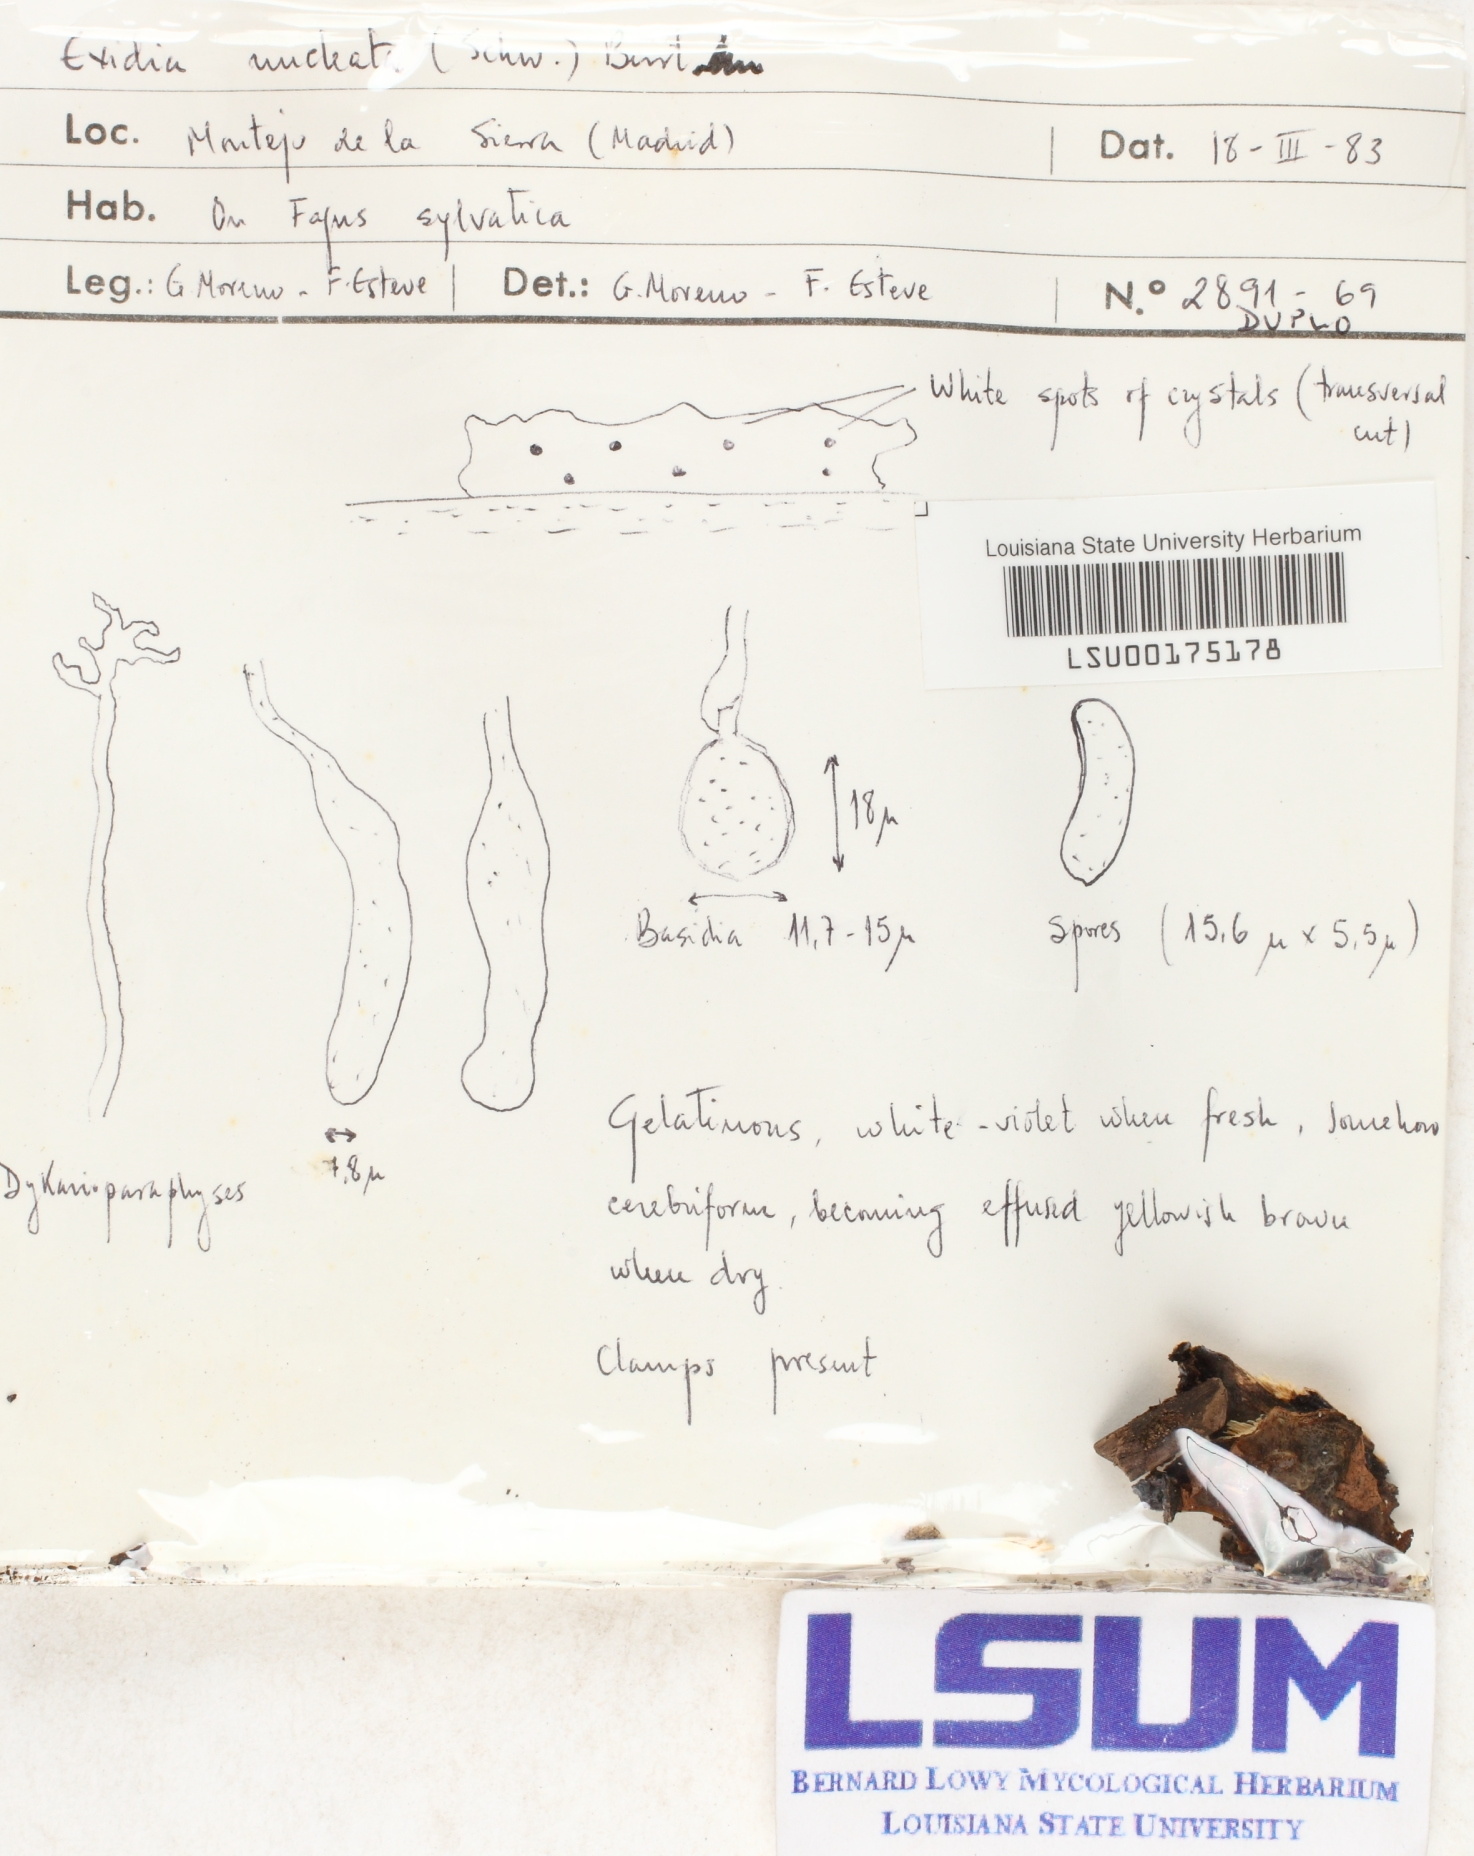 Exidia nucleata (Schw.) Burt
Loc. Montejo de la Sierra (Madrid) Dat. 18-III-83
Hab. On Fagus sylvatica
Leg.: G. Moreno - F. Esteve Det.: G. Moreno - F. Esteve N.º 2891-69
DUPLO
White spots of crystals (transversal
cut)
Louisiana State University Herbarium
LSU00175178
18 µ
Basidia 11,7-15 µ
Spores (15,6 µ x 5,5 µ)
7,8 µ
Dykarioparaphyses
Gelatinous, white-violet when fresh, somehow
cerebriform, becoming effused yellowish brown
when dry.
Clamps present
LSUM
BERNARD LOWY MYCOLOGICAL HERBARIUM
LOUISIANA STATE UNIVERSITY